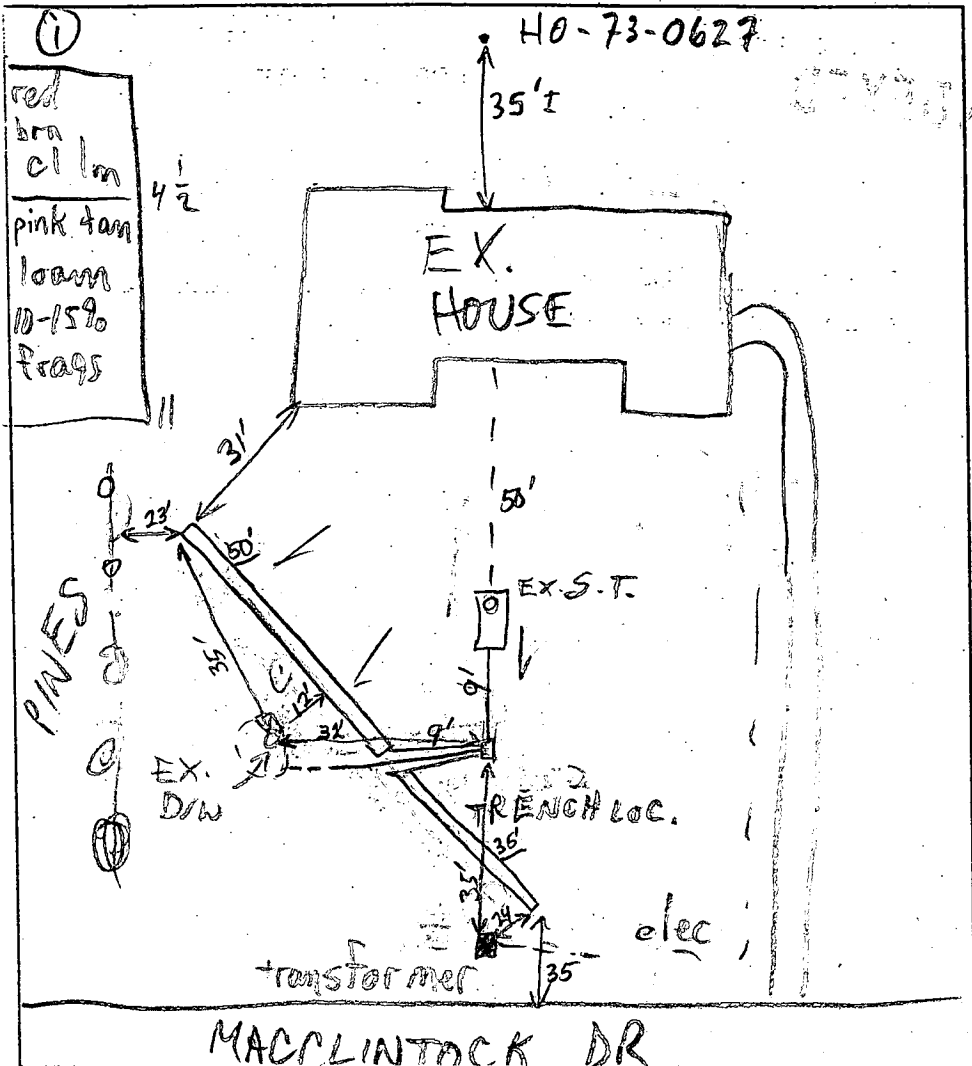 1
HO-73-0627
35'±
red
brn
cl lm
4 1/2
pink tan
loam
10-15%
frags
11
EX.
HOUSE
31'
23'
50'
50'
EX. S.T.
PINES
35'
12'
9'
32'
9'
EX.
D/W
TRENCH LOC.
36'
35'
24
elec
transformer
35
MACCLINTOCK DR